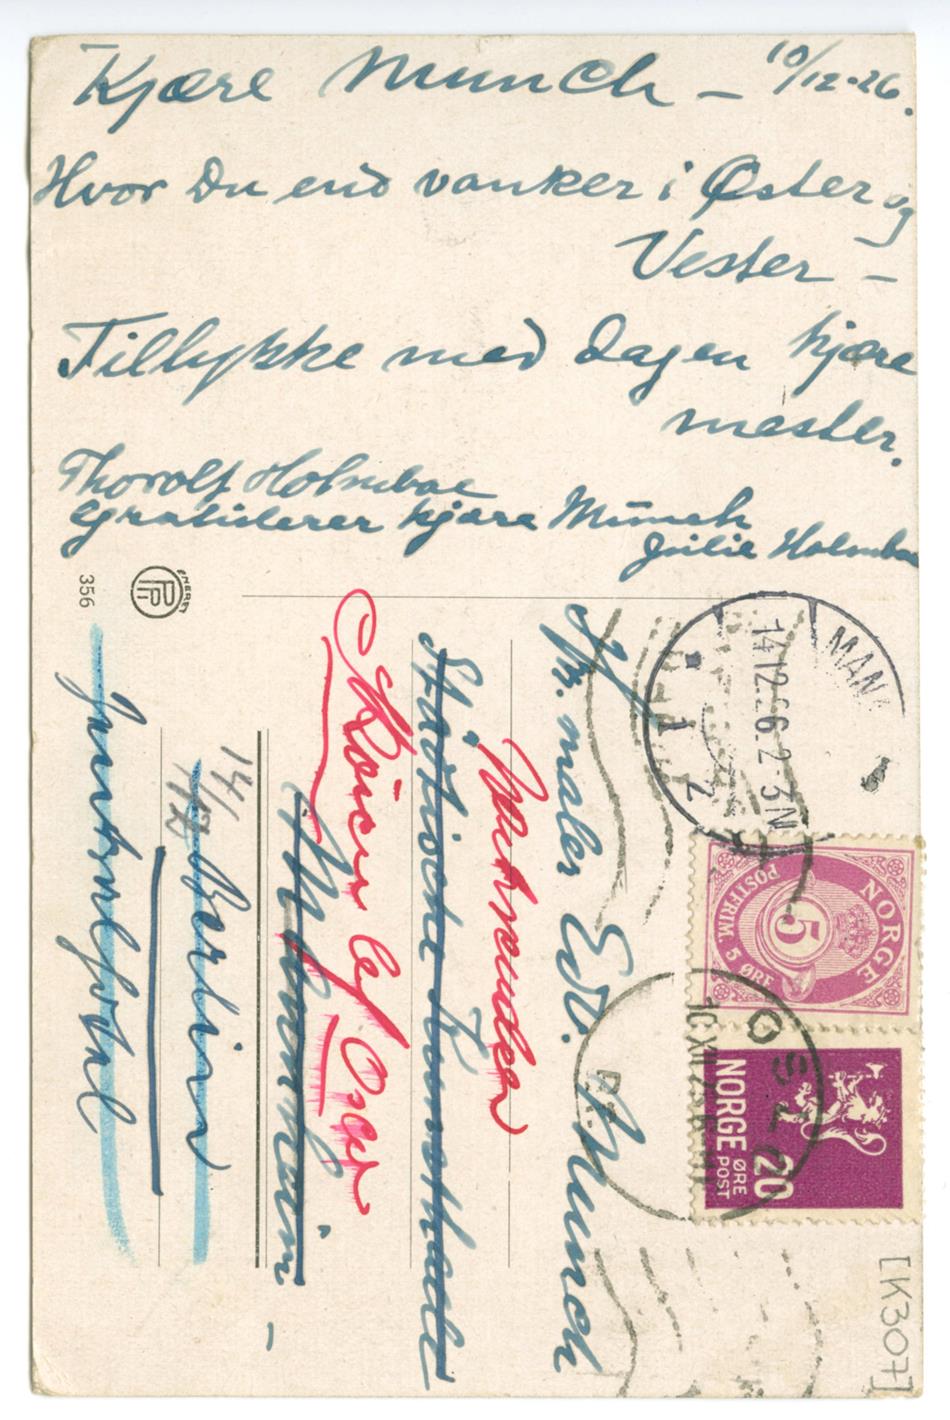 Kjære Munch – 10/12-26.
Hvor Du end vanker i Øster og
Vester –
Tillykke med dagen kjære
mester.
Thorolf Holmboe
Gratulerer kjære Munch
Julie Holmboe
356
Hr. maler Edv. Munch
Städtische Kunsthalle
Mannheim –
Berlin
14/12
Oslo
MAN
14.12.26.2-3N
NORGE
5
POSTFRIM. 5 ØRE
OSLO
10 XII 26
NORGE
20
ØRE
POST
[K307]